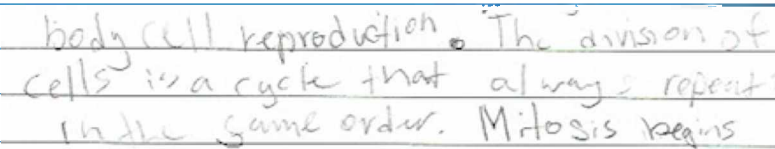 body cell reproduction. The division of
cells is a cycle that always repeat
in the same order. Mitosis begins